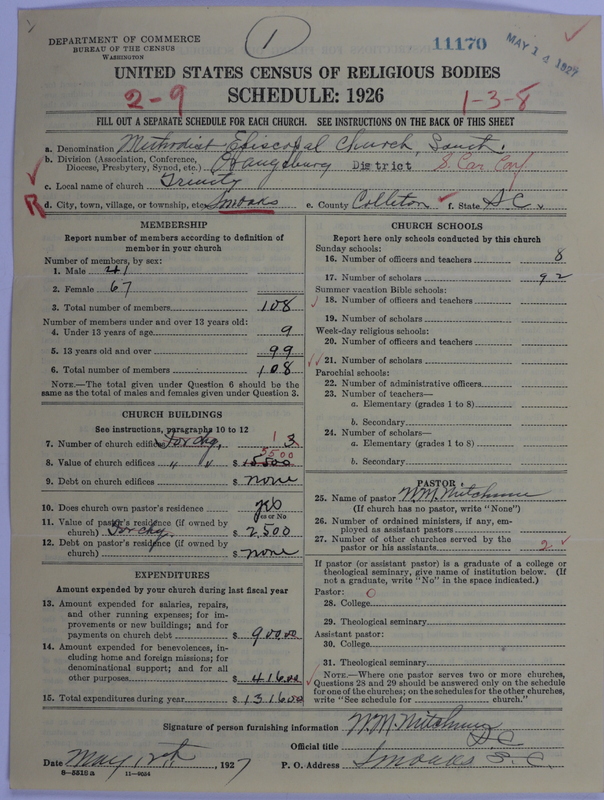 DEPARTMENT OF COMMERCE
BUREAU OF THE CENSUS
WASHINGTON
1
11170
MAY 14 1927
UNITED STATES CENSUS OF RELIGIOUS BODIES
2-9 SCHEDULE: 1926 1-3-8
FILL OUT A SEPARATE SCHEDULE FOR EACH CHURCH. SEE INSTRUCTIONS ON THE BACK OF THIS SHEET
a. Denomination Methodist Episcopal Church, South.
b. Division (Association, Conference, Diocese, Presbytery, Synod, etc.) Orangeburg District S. Car Conf
c. Local name of church Trinity
R d. City, town, village, or township, etc. Smoaks e. County Colleton f. State S C
MEMBERSHIP
Report number of members according to definition of member in your church
Number of members, by sex:
1. Male 41
2. Female 67
3. Total number of members 108
Number of members under and over 13 years old:
4. Under 13 years of age 9
5. 13 years old and over 99
6. Total number of members 108
NOTE.—The total given under Question 6 should be the same as the total of males and females given under Question 3.
CHURCH BUILDINGS
See instructions, paragraphs 10 to 12
7. Number of church edifices For chg. 1 3
8. Value of church edifices " " $ 15500 5500
9. Debt on church edifices $ none
10. Does church own pastor's residence yes
Yes or No
11. Value of pastor's residence (if owned by church) For chg. $ 2500
12. Debt on pastor's residence (if owned by church) $ none
EXPENDITURES
Amount expended by your church during last fiscal year
13. Amount expended for salaries, repairs, and other running expenses; for improvements or new buildings; and for payments on church debt $ 900.00
14. Amount expended for benevolences, including home and foreign missions; for denominational support; and for all other purposes $ 416.00
15. Total expenditures during year $ 1316.00
CHURCH SCHOOLS
Report here only schools conducted by this church
Sunday schools:
16. Number of officers and teachers 8
17. Number of scholars 92
Summer vacation Bible schools:
18. Number of officers and teachers
19. Number of scholars
Week-day religious schools:
20. Number of officers and teachers
21. Number of scholars
Parochial schools:
22. Number of administrative officers
23. Number of teachers—
a. Elementary (grades 1 to 8)
b. Secondary
24. Number of scholars—
a. Elementary (grades 1 to 8)
b. Secondary
PASTOR
25. Name of pastor W.M. Mitchum
(If church has no pastor, write "None")
26. Number of ordained ministers, if any, employed as assistant pastors
27. Number of other churches served by the pastor or his assistants 2
If pastor (or assistant pastor) is a graduate of a college or theological seminary, give name of institution below. (If not a graduate, write "No" in the space indicated.)
Pastor: O
28. College
29. Theological seminary
Assistant pastor:
30. College
31. Theological seminary
NOTE.—Where one pastor serves two or more churches, Questions 28 and 29 should be answered only on the schedule for one of the churches; on the schedules for the other churches, write "See schedule for church."
Signature of person furnishing information W.M. Mitchum
Official title P.C.
Date May 12th, 1927 P. O. Address Smoaks S. C.
8-5518a 11-9034